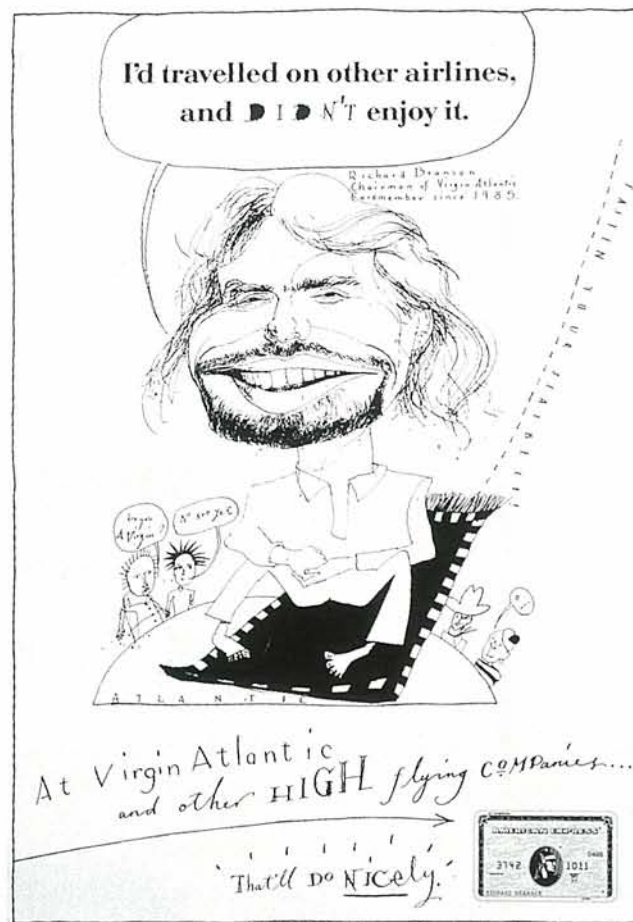 I'd travelled on other airlines,
and DIDN'T enjoy it.
Richard Branson
Chairman of Virgin Atlantic
Cardmember since 1985.
Are you
A Virgin?
ATLANTIC
At Virgin Atlantic
and other HIGH flying COMPanies...
'That'll DO NICely.'
AMERICAN EXPRESS
3742 1011